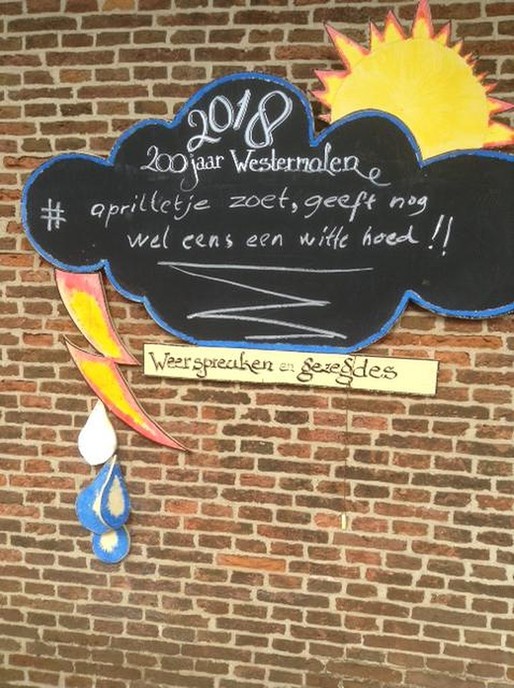 2018
200 jaar Westermolen
# aprilletje zoet, geeft nog
wel eens een witte hoed !!
Weerspreuken en gezegdes